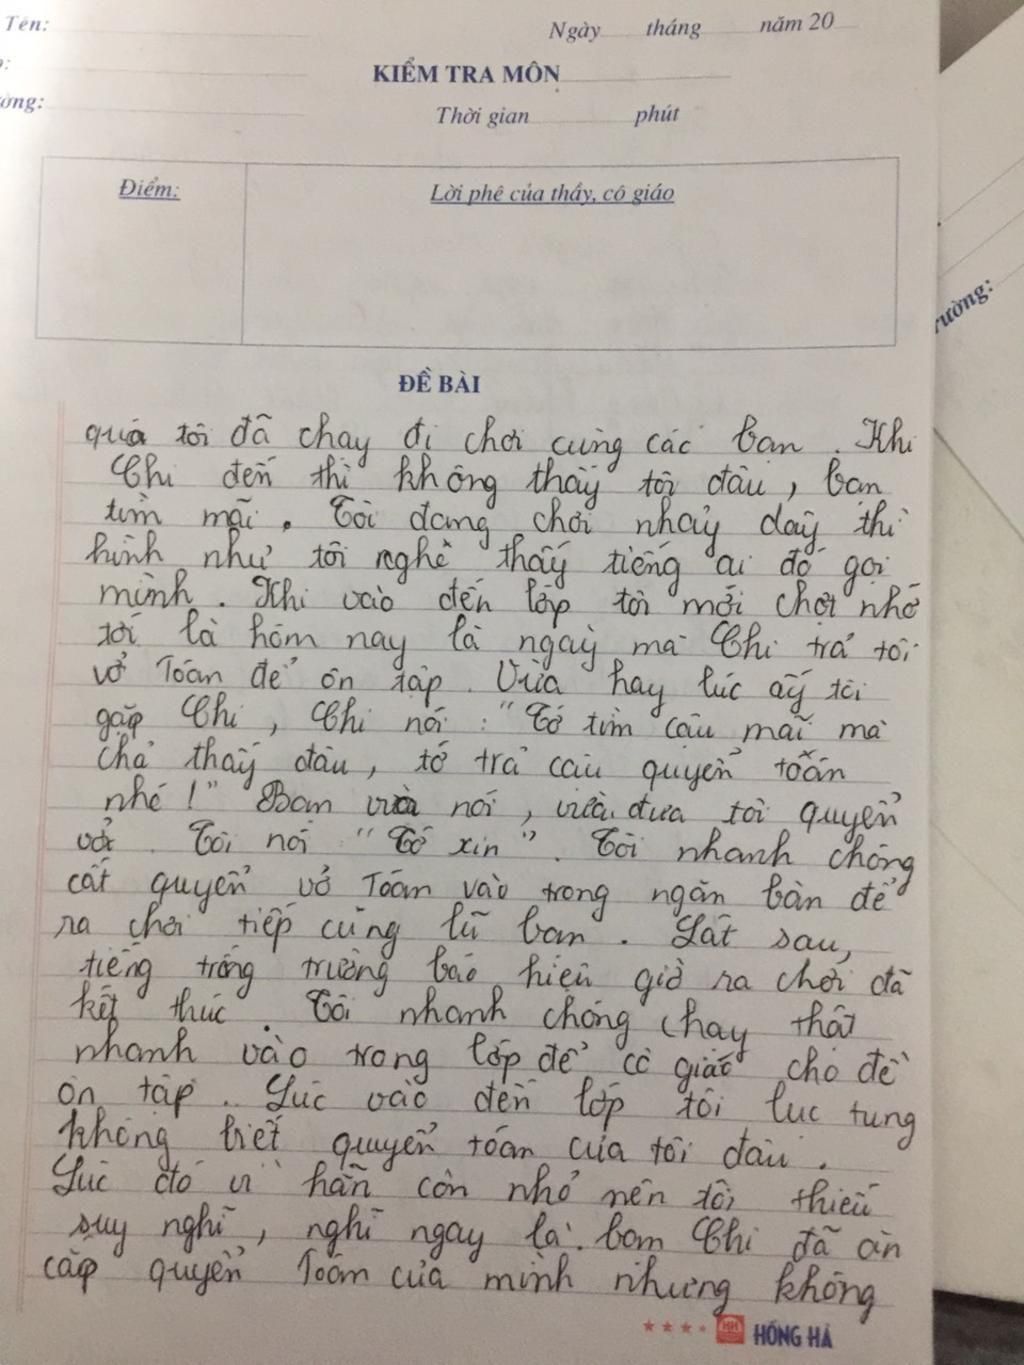 Tên:
Ngày tháng năm 20
KIỂM TRA MÔN
ường:
Thời gian phút
Điểm:
Lời phê của thầy, cô giáo
rường:
ĐỀ BÀI
quá tôi đã chạy đi chơi cùng các bạn. Khi
Chi đến thì không thấy tôi đâu, bạn
tìm mãi. Tôi đang chơi nhảy dây thì
hình như tôi nghe thấy tiếng ai đó gọi
mình. Khi vào đến lớp tôi mới chợt nhớ
tới là hôm nay là ngày mà Chi trả tôi
vở Toán để ôn tập. Vừa hay lúc ấy tôi
gặp Chi, Chi nói: "Tớ tìm cậu mãi mà
chả thấy đâu, tớ trả cậu quyển toán
nhé!" Bạn vừa nói, vừa đưa tôi quyển
vở. Tôi nói "Tớ xin". Tôi nhanh chóng
cất quyển vở Toán vào trong ngăn bàn để
ra chơi tiếp cùng lũ bạn. Lát sau,
tiếng trống trường báo hiệu giờ ra chơi đã
kết thúc. Tôi nhanh chóng chạy thật
nhanh vào trong lớp để cô giáo cho đề
ôn tập. Lúc vào đến lớp tôi lục tung
không biết quyển toán của tôi đâu.
Lúc đó vì hẵn còn nhỏ nên tôi thiếu
suy nghĩ, nghĩ ngay là bạn Chi đã ăn
cắp quyển Toán của mình nhưng không
HH
HỒNG HÀ